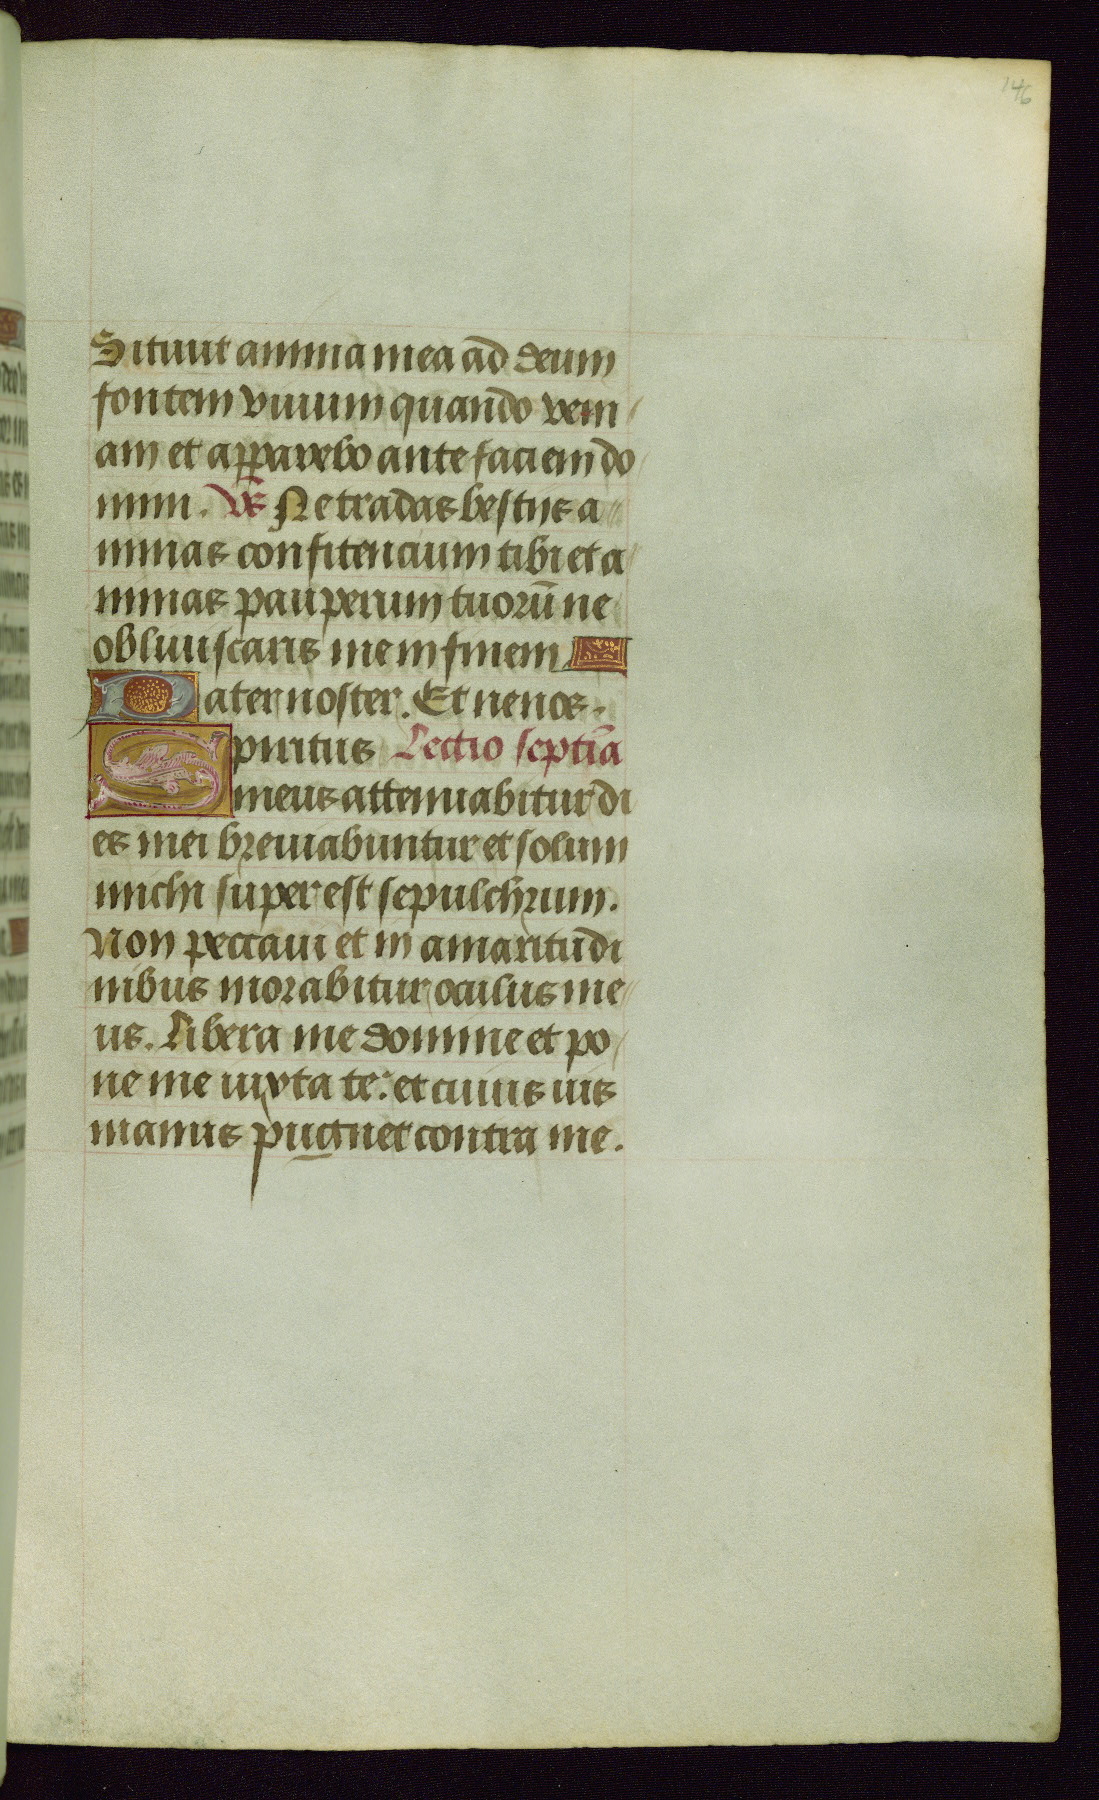 146
Sitiuit anima mea ad deum
fontem viuum quando veni
am et apparebo ante faciem do
mini. Vs Ne tradas bestijs a
nimas confitencium tibi et a
nimas pauperum tuorū ne
obliuiscaris me in finem
Pater noster. Et ne nos.
Spiritus Lectio septīa
meus attenuabitur di
es mei breuiabuntur et solum
michi superest sepulchrum.
Non peccaui et in amaritudi
nibus morabitur oculus me
us. Libera me domine et po
ne me iuxta te: et cuiuis uis
manus pugnet contra me.